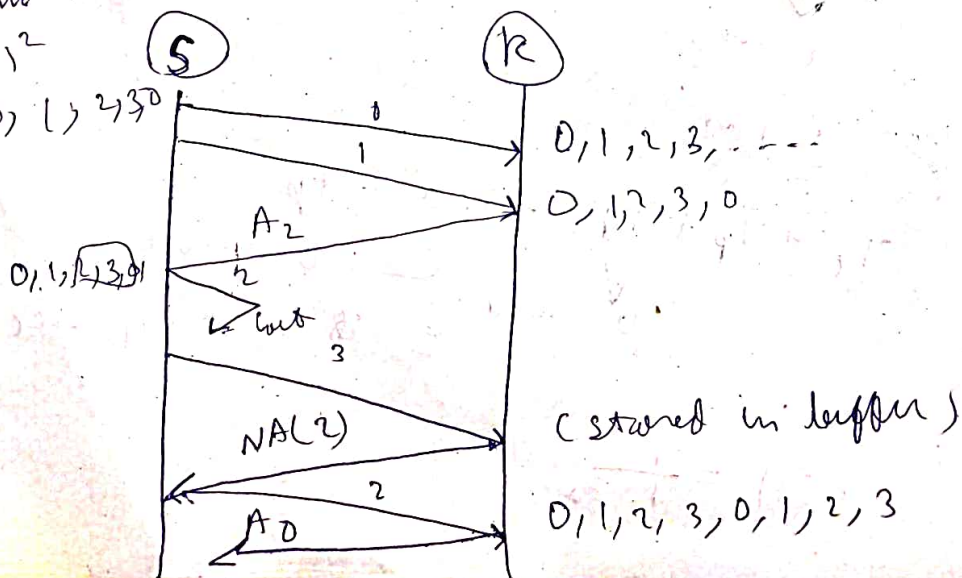 2
S R
1, 2, 3, 0
0
0, 1, 2, 3, .....
1
0, 1, 2, 3, 0
A2
0, 1, 2, 3, 0, 1
2
lost
3
(stored in buffer)
NA(2)
2
0, 1, 2, 3, 0, 1, 2, 3
A0